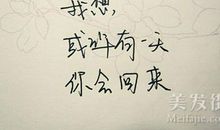 我想，
或许有一天
你会回来
美发街
Meifajie.com